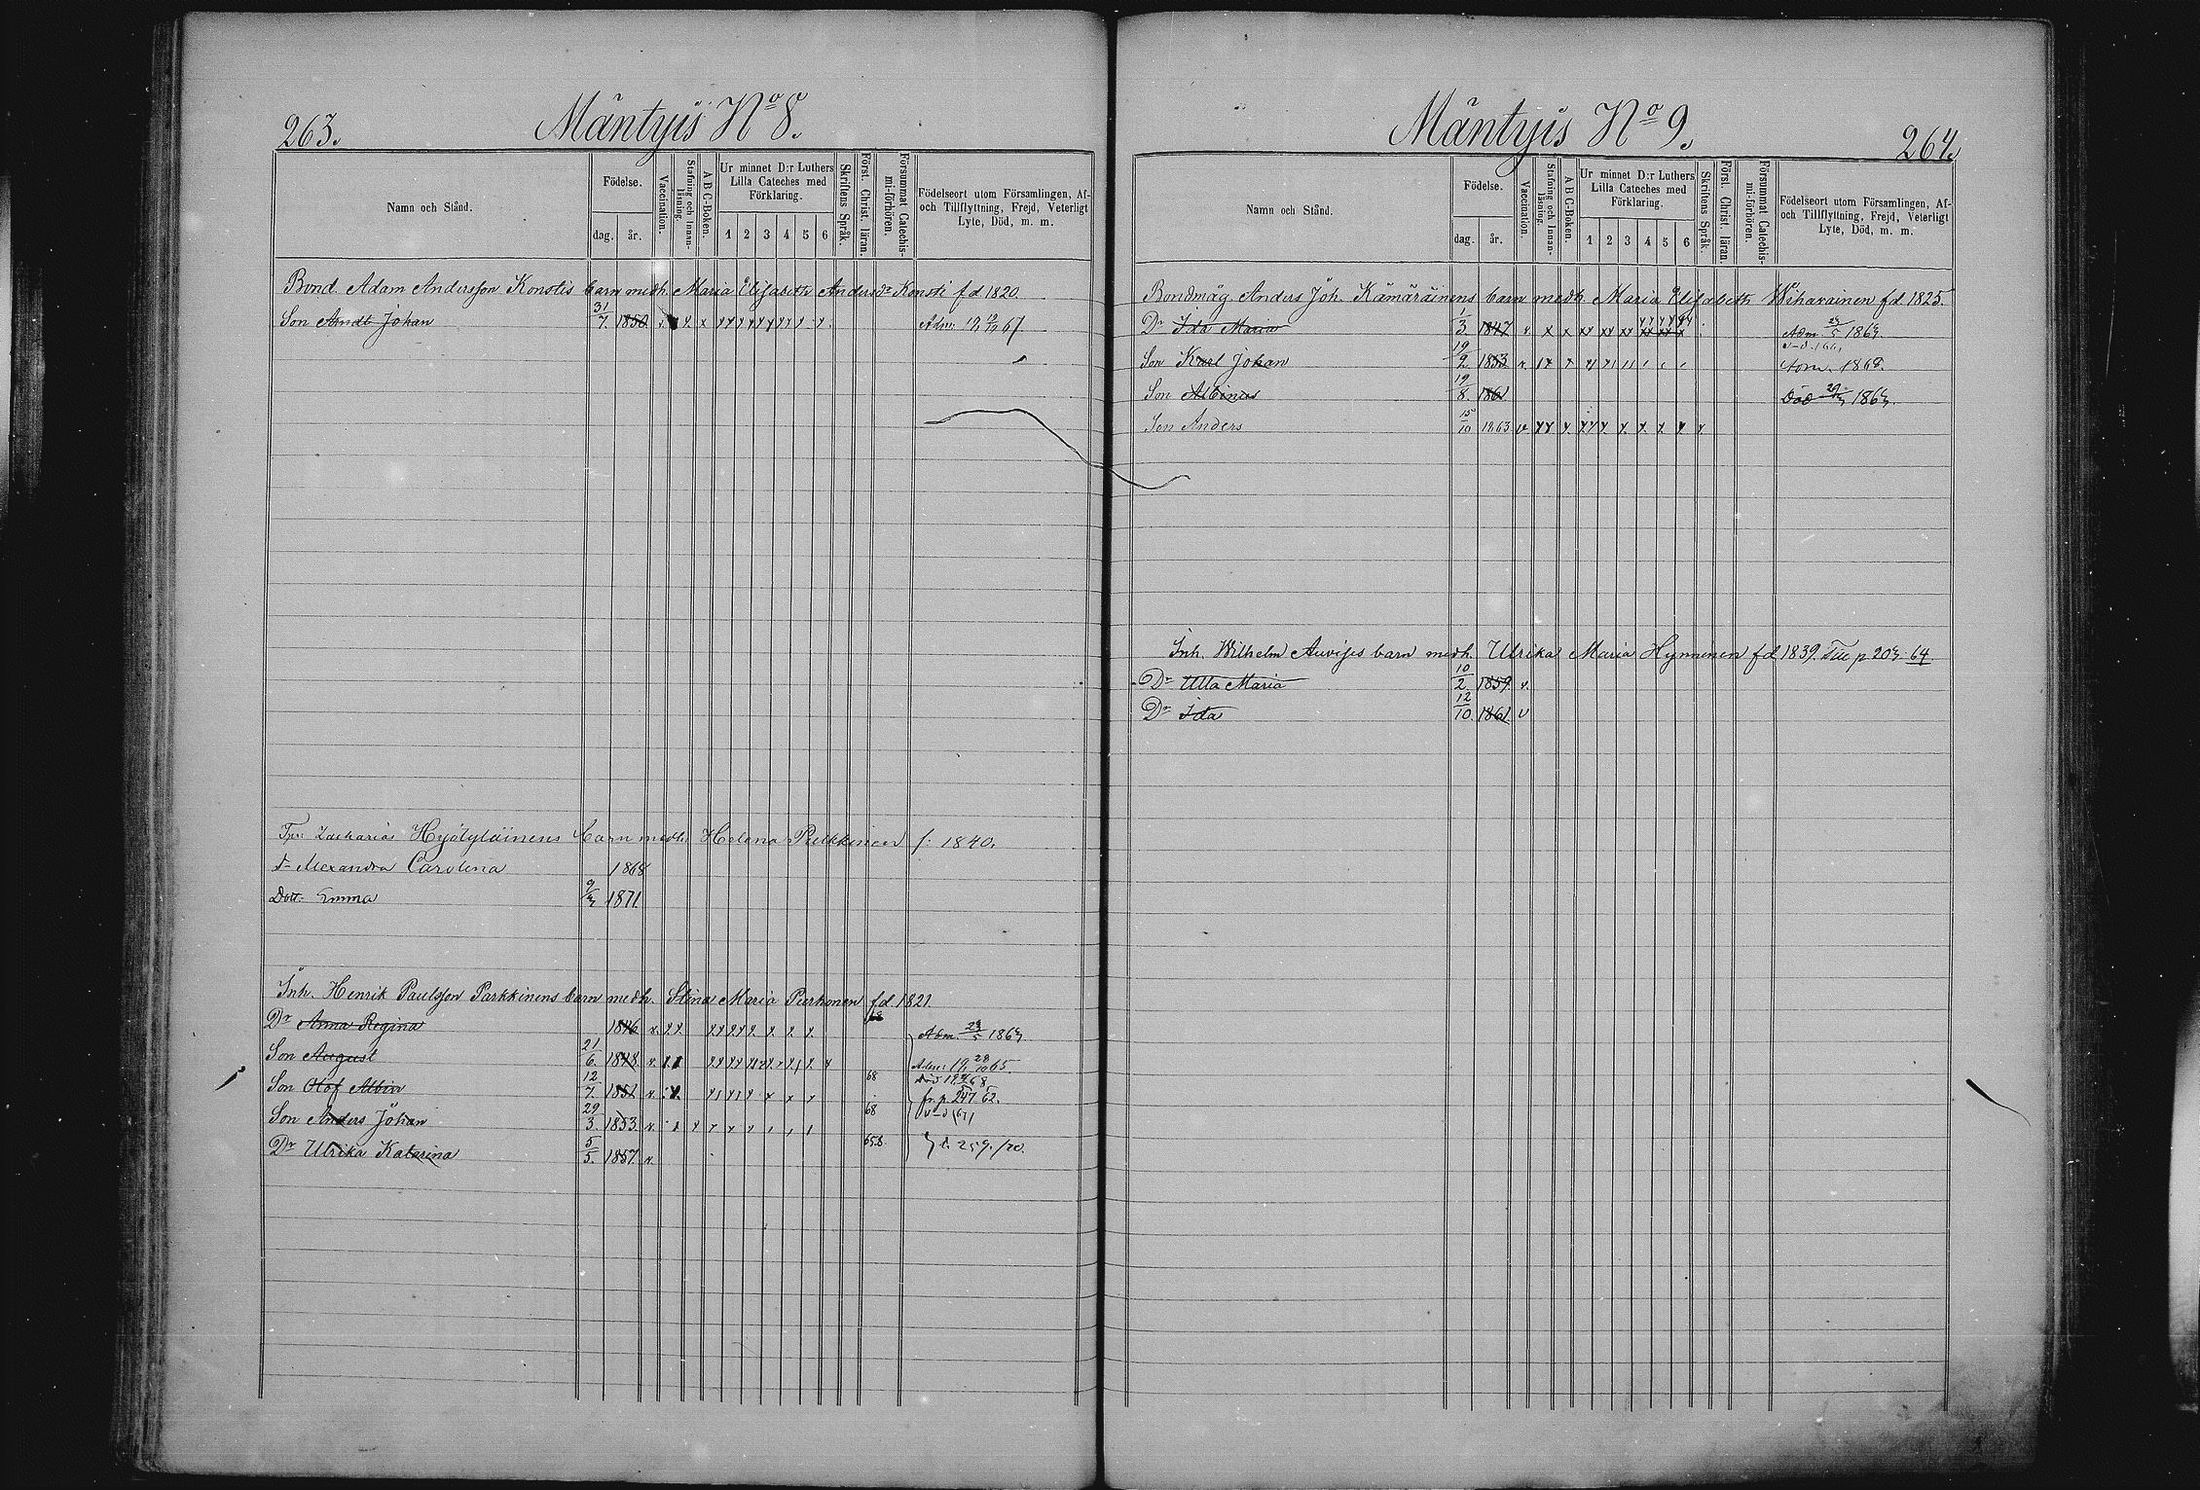 263.
Mäntyis No 8.
Namn och Stånd.
Födelse.
dag.
år.
Vaccination.
Stafning och Innan-läsning.
A B C-Boken.
Ur minnet D:r Luthers
Lilla Cateches med
Förklaring.
1 2 3 4 5 6
Skriftens Språk.
Först. Christ. läran.
Försummat Catechis-mi-förhören.
Födelseort utom Församlingen, Af-
och Tillflyttning, Frejd, Veterligt
Lyte, Död, m. m.
Bond. Adam Andersson Konstis barn medh. Maria Elisabeth Andersdr Konsti f.d 1820.
Son Arndt Johan 31/7. 1850 Adm: 67
Zacharias Hyötyläinens barn medh. Helena Pulkkinen f: 1840.
d- Alexandra Carolina 1868
Dott. Emma 9/3 1871
Inh. Henrik Paulsson Parkkinens barn medh. Stina Maria Purhonen f.d 1821
Dr Anna Regina 1846 v. Adm. 1863.
Son August 21/6. 1848 v. Adm: 19 28/10 65.
Son Olof Albin 12/7. 1851 v. 68 fr. p. 247 62.
Son Anders Johan 29/3. 1853 v. 68
Dr Ulrika Katarina 5/5. 1857 v. 259. /70.
Mäntyis No 9.
264.
Namn och Stånd.
Födelse.
dag.
år.
Vaccination.
Stafning och Innan-läsning.
A B C-Boken.
Ur minnet D:r Luthers
Lilla Cateches med
Förklaring.
1 2 3 4 5 6
Skriftens Språk.
Först. Christ. läran.
Försummat Catechis-mi-förhören.
Födelseort utom Församlingen, Af-
och Tillflyttning, Frejd, Veterligt
Lyte, Död, m. m.
Bondmåg Anders Joh. Kämäräinens barn medh. Maria Elisabeth Wihavainen f.d. 1825.
Dr Ida Maria 1/3. 1847 v. Adm 1863.
Son Karl Johan 19/2 1853 v. Adm. 1868.
Son Albinus 19/8. 1861 Död 1863.
Son Anders 15/10 1863 v
Inh. Wilhelm Auvises barn medh. Ulrika Maria Hynninen f.d 1839. p 203 64
Dr Ulla Maria 10/2 1859 v.
Dr Ida 12/10. 1861 v